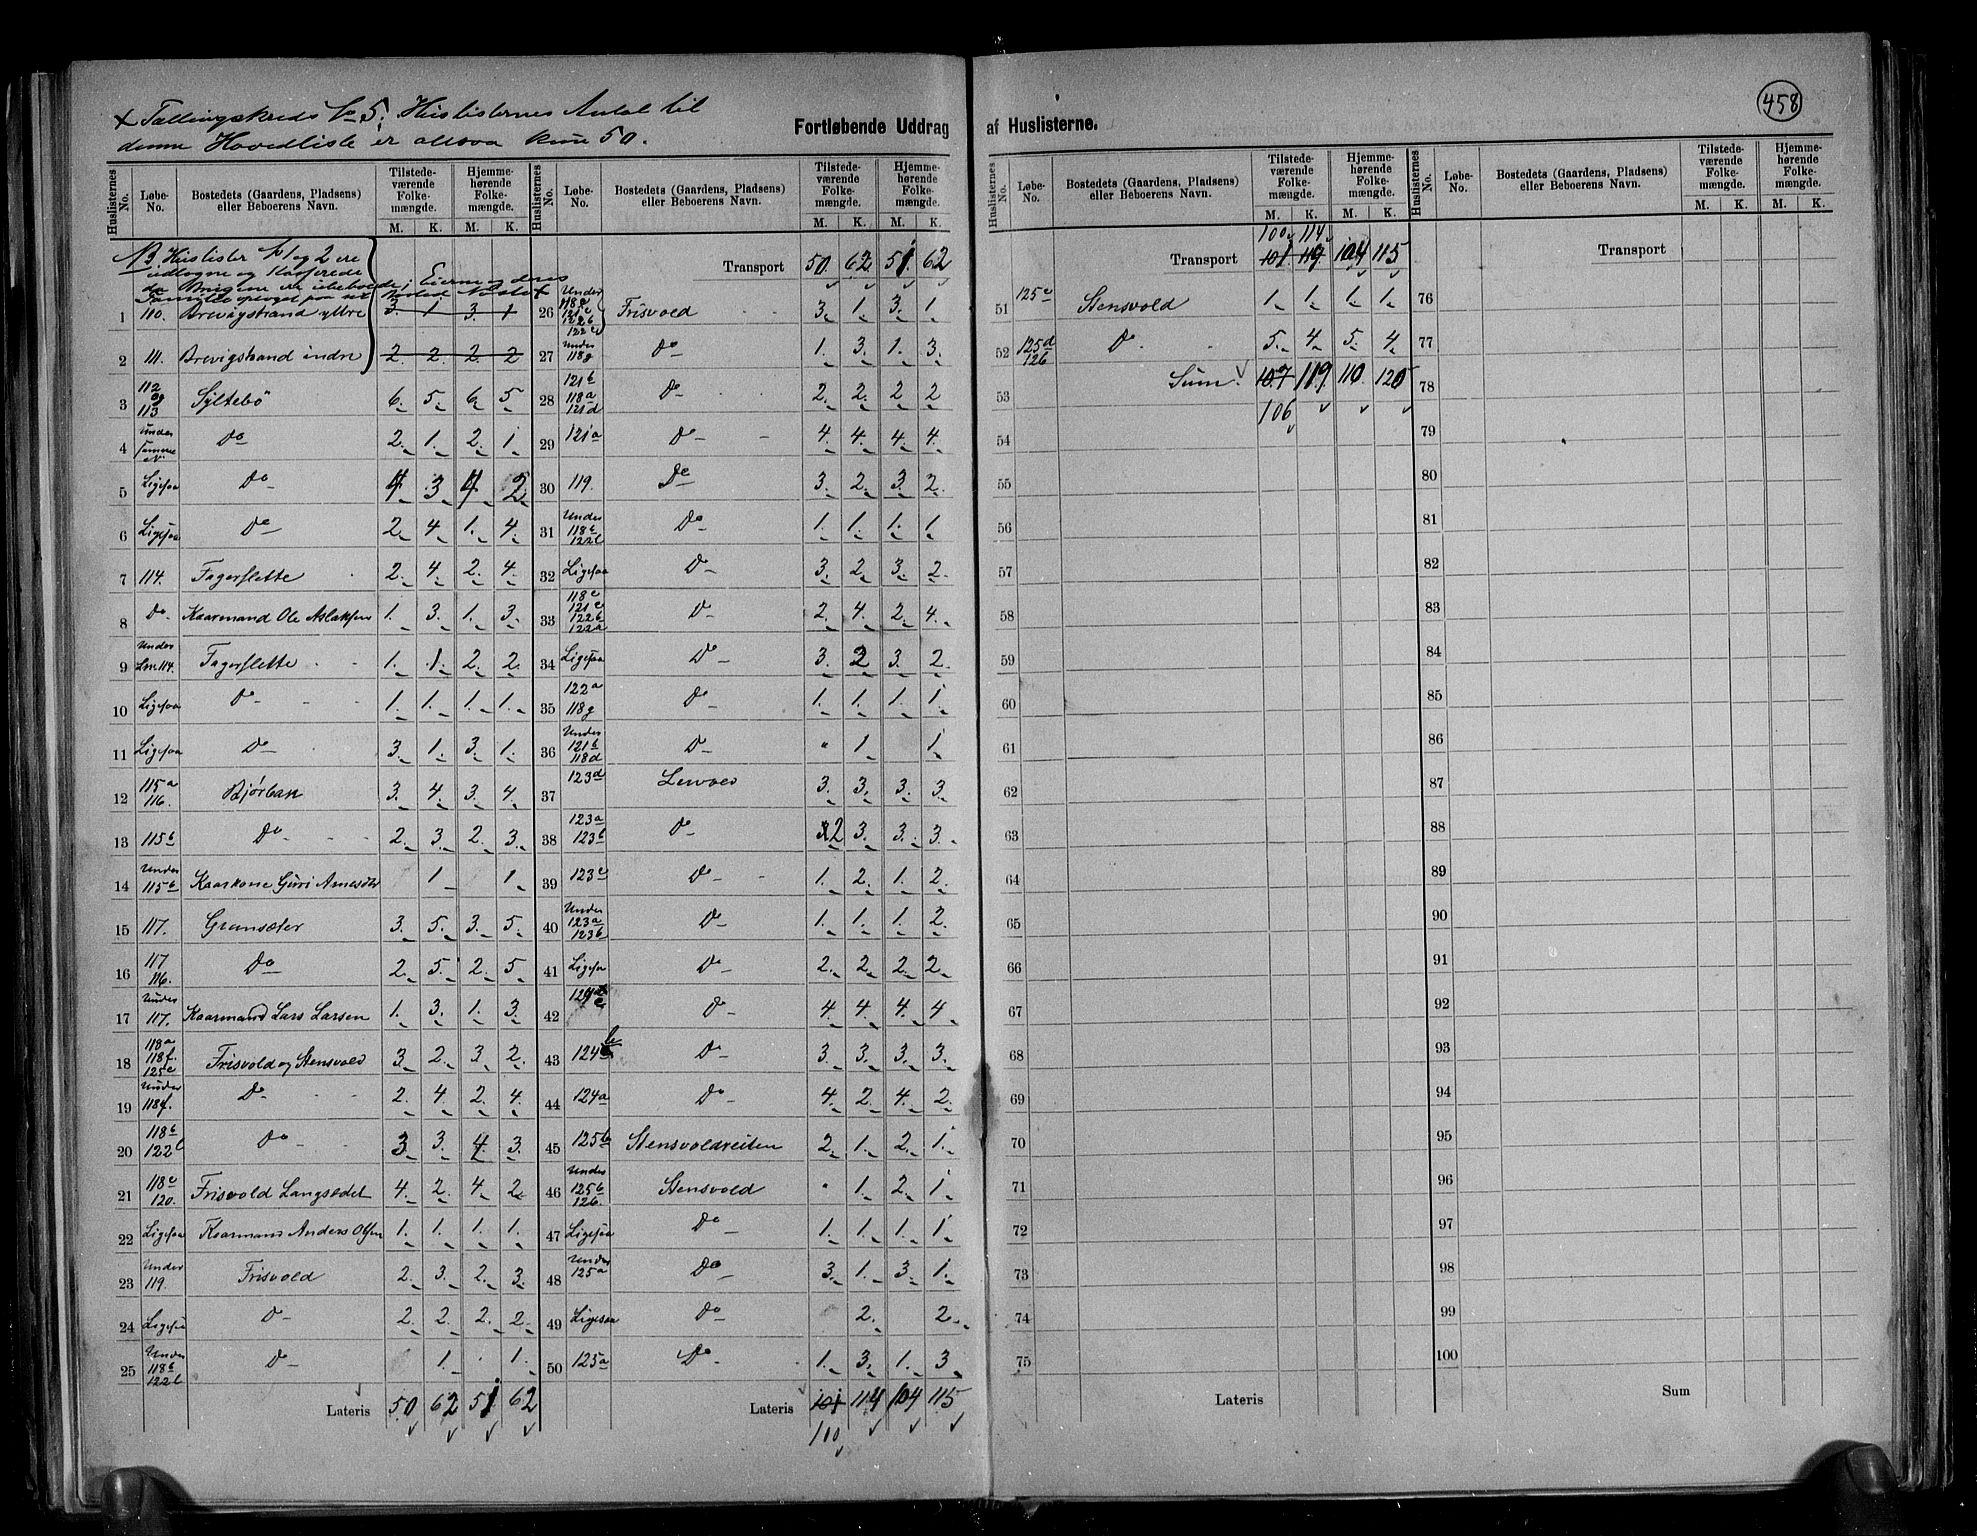 458
x Tællingskreds No 5. Huslisternes Antal til
denne Hovedliste er altsaa kun 50.
Fortløbende Uddrag af Huslisterne.
Huslisternes No. Løbe-No. Bostedets (Gaardens, Pladsens) eller Beboerens Navn. Tilstede-værende Folke-mængde. M. K. Hjemme-hørende Folke-mængde. M. K.
NB. Huslister No 1 og 2 ere
udtagne og kasserede
da Brugene ere ubeboede; Eierne og deres
Familie opvoget paa sit Bosted Nostet
1 110. Brevigstrand yttre 3. 1 3. 1
2 111. Brevigstrand indre 2. 2. 2. 2
3 112 og 113 Syltebö 6. 5. 6. 5.
4 Under samme No Do 2. 1. 2. 1.
5 Ligesaa Do 4. 3. 4. 2.
6 Ligesaa Do 2. 4. 1. 4.
7 114. Fagerslette 2. 4. 2. 4.
8 Do. Kaarmand Ole Aslaksen 1. 3. 1. 3.
9 Under Lno.114. Fagerslette 1. 1. 2. 2.
10 Ligesaa Do 1. 1. 1. 1.
11 Ligesaa Do 3. 1. 3. 1.
12 115a 116. Bjørbak 3. 4. 3. 4.
13 115b Do 2. 3. 2. 3.
14 Under 115b Kaarkone Guri Arnesdtr 1 1.
15 117. Gransæter 3. 5. 3. 5.
16 117 116. Do 2. 5. 2. 5.
17 Under 117. Kaarmand Lars Larsen 1. 3. 1. 3.
18 118a 118f. 125c Frisvold og Stensvold 3. 2. 3. 2.
19 Under 118f. Do 2. 4. 2. 4.
20 118b 122b Do 3. 3. 4. 3.
21 118c 120. Frisvold Langsedet 4. 2. 4. 2.
22 Ligesaa Kaarmand Anders Olsen 1. 1. 1. 1.
23 Under 119. Frisvold 2. 3. 2. 3.
24 Ligesaa Do 2. 2. 2. 2.
25 Under 118b 122b Do 1. 1.
Lateris 50 62 51 62
Huslisternes No. Løbe-No. Bostedets (Gaardens, Pladsens) eller Beboerens Navn. Tilstede-værende Folke-mængde. M. K. Hjemme-hørende Folke-mængde. M. K.
Transport 50. 62 51. 62
26 Under 118a 121c 122b 122c Frisvold 3. 1. 3. 1.
27 Under 118g Do 1. 3. 1. 3.
28 121b 118a 121d Do 2. 2. 2. 2
29 121a Do 4. 4. 4. 4.
30 119. Do 3. 2. 3. 2.
31 Under 118b 122b Do 1. 1. 1. 1
32 Ligesaa Do 3. 2. 3. 2.
33 118e 121c 122b 122a Do 2. 4. 2. 4.
34 Ligesaa Do 3. 2 3. 2.
35 122a 118g Do 1. 1. 1. 1.
36 Under 121b 118d Do " 1 1.
37 123d Lervold 3. 3. 3. 3.
38 123a 123b Do 2 3. 3. 3.
39 123c Do 1. 2. 1. 2.
40 Under 123a 123b Do 1. 1. 1. 2.
41 Ligesaa Do 2. 2. 2. 2.
42 124c Do 4. 4. 4. 4
43 124b Do 3. 3. 3. 3.
44 124a Do 4. 2. 4. 2.
45 125b Stensvoldreiten 2. 1. 2. 1.
46 Under 125b 126. Stensvold " 1. 2. 1.
47 Ligesaa Do 1. 1. 1. 1
48 Under 125a Do 3. 1. 3. 1.
49 Ligesaa Do 2. 2.
50 125a Do 1. 3. 1. 3.
Lateris 101 114 104 115
100
Huslisternes No. Løbe-No. Bostedets (Gaardens, Pladsens) eller Beboerens Navn. Tilstede-værende Folke-mængde. M. K. Hjemme-hørende Folke-mængde. M. K.
100 114
Transport 101 119 104 115
51 125c Stensvold 1. 1. 1. 1.
52 125d 126 Do 5. 4. 5. 4.
53 Sum. 107 119 110. 120
106
54
55
56
57
58
59
60
61
62
63
64
65
66
67
68
69
70
71
72
73
74
75
Lateris
Huslisternes No. Løbe-No. Bostedets (Gaardens, Pladsens) eller Beboerens Navn. Tilstede-værende Folke-mængde. M. K. Hjemme-hørende Folke-mængde. M. K.
Transport
76
77
78
79
80
81
82
83
84
85
86
87
88
89
90
91
92
93
94
95
96
97
98
99
100
Sum